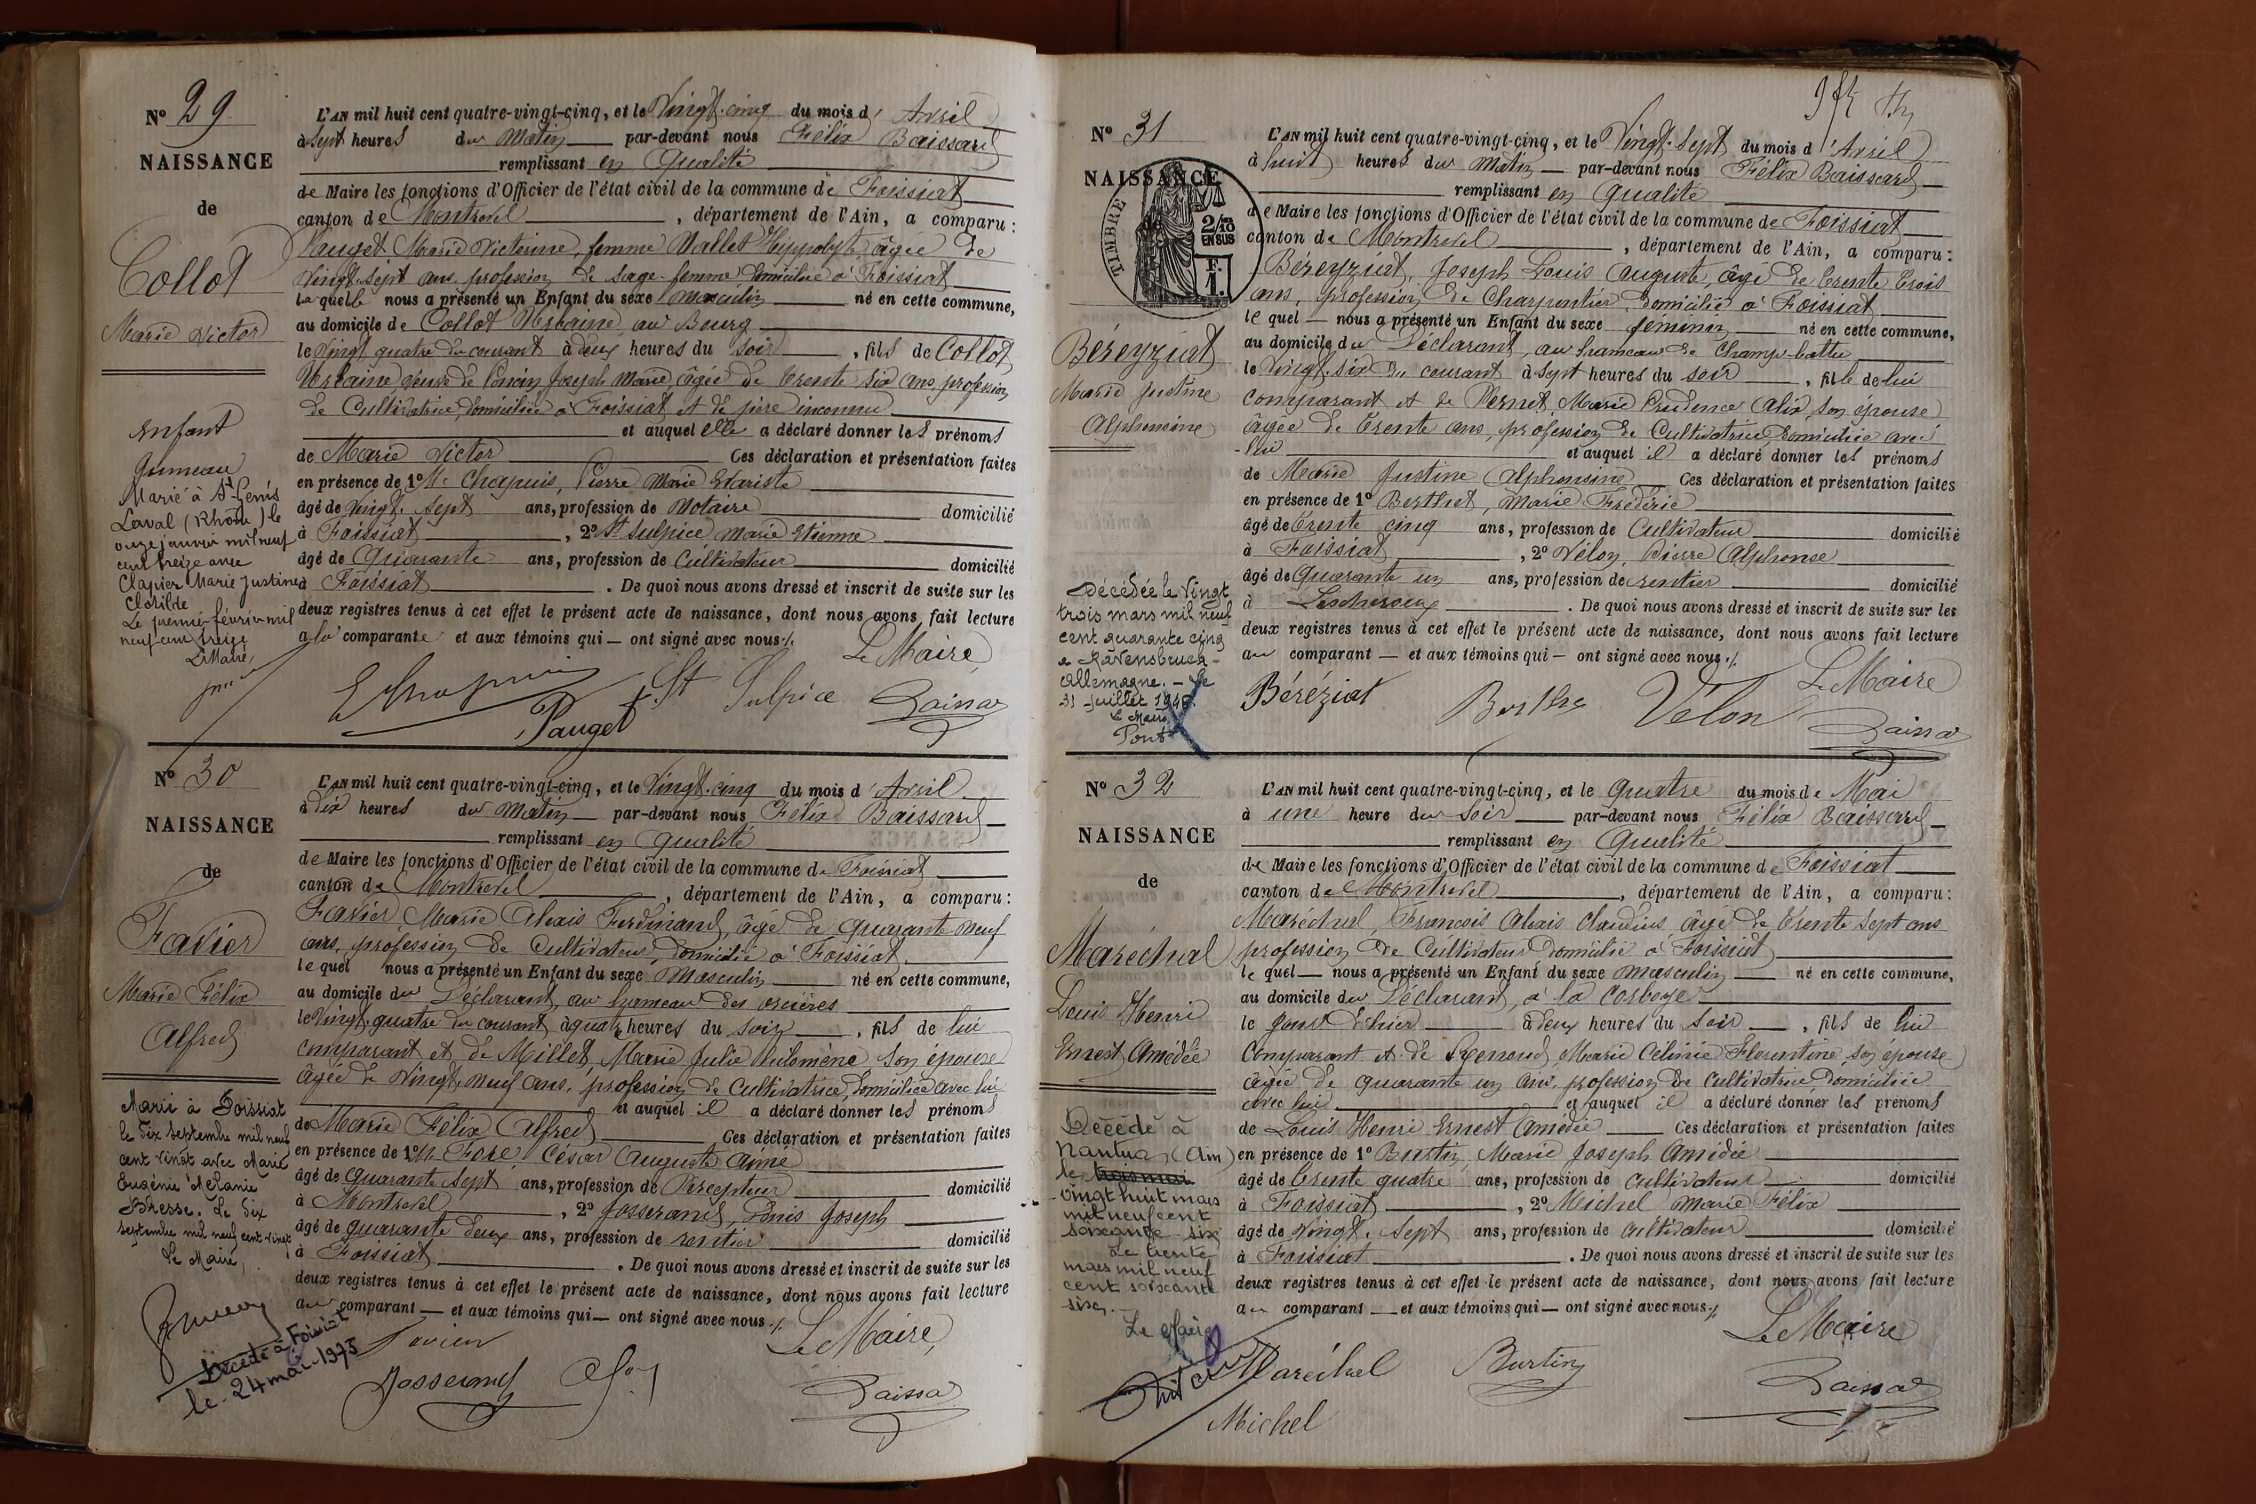 Nº 29
NAISSANCE
de
Collot
Marie Victor
Enfant
Jumeau
Marié à St Genis
Laval (Rhône) le
onze janvier mil neuf
cent treize avec
Clapier Marie Justine
Clotilde
Le premier février mil
neuf cent treize
Le Maire,
L'AN mil huit cent quatre-vingt-cinq, et le Vingt-cinq du mois d'Avril
à sept heures du matin par-devant nous Félix Baissard
remplissant en qualité
de Maire les fonctions d'Officier de l'état civil de la commune de Foissiat
canton de Montrevel, département de l'Ain, a comparu:
Pauget Marie Victorine, femme Vallet Hippolyte, âgée de
Vingt-sept ans, profession de sage-femme domiciliée à Foissiat
laquelle nous a présenté un Enfant du sexe masculin né en cette commune,
au domicile de Collot Urbaine, au Bourg
le Vingt quatre du courant à deux heures du soir, fils de Collot
Urbaine veuve de Joseph Marie, âgée de trente six ans, profession
de Cultivatrice, domiciliée à Foissiat et de père inconnu
et auquel elle a déclaré donner les prénoms
de Marie Victor Ces déclaration et présentation faites
en présence de 1º Mr Chapuis, Pierre Marie Evariste
âgé de Vingt-sept ans, profession de Notaire domicilié
à Foissiat, 2º St Sulpice Marie Etienne
âgé de Quarante ans, profession de Cultivateur domicilié
à Foissiat. De quoi nous avons dressé et inscrit de suite sur les
deux registres tenus à cet effet le présent acte de naissance, dont nous avons fait lecture
a la comparante et aux témoins qui ont signé avec nous ./.
Le Maire
Pauget St Sulpice
Nº 30
NAISSANCE
de
Favier
Marie Félix
Alfred
Marié à Foissiat
le dix septembre mil neuf
cent vingt avec Marie
Eugénie Mélanie
Bresse. Le dix
septembre mil neuf cent vingt
Le Maire,
Décédé à Foissiat
le 24 mai 1975
L'AN mil huit cent quatre-vingt-cinq, et le Vingt-cinq du mois d'Avril
à Dix heures du matin par-devant nous Félix Baissard
remplissant en qualité
de Maire les fonctions d'Officier de l'état civil de la commune de Foissiat
canton de Montrevel, département de l'Ain, a comparu:
Favier, Marie Alexis Ferdinand, âgé de quarante neuf
ans, profession de Cultivateur, domicilié à Foissiat.
lequel nous a présenté un Enfant du sexe Masculin né en cette commune,
au domicile du Déclarant, au hameau des
le Vingt-quatre du courant à quatre heures du soir, fils de lui
comparant et de Millet, Marie Julie Philomène son épouse
âgée de Vingt-neuf ans, profession de Cultivatrice, domiciliée avec lui
et auquel il a déclaré donner les prénoms
de Marie Félix Alfred Ces déclaration et présentation faites
en présence de 1º César Auguste Aimé
âgé de quarante sept ans, profession de Percepteur domicilié
à Montrevel, 2º Josserand, Denis Joseph
âgé de quarante deux ans, profession de rentier domicilié
à Foissiat. De quoi nous avons dressé et inscrit de suite sur les
deux registres tenus à cet effet le présent acte de naissance, dont nous avons fait lecture
au comparant et aux témoins qui ont signé avec nous ./.
Favier Le Maire,
Josserand
Nº 31
NAISSANCE
de
TIMBRE
2/10
EN SUS
F.
1.
Béreyziat
Marie Justine
Alphonsine
Décédée le vingt
trois mars mil neuf
cent quarante cinq
à Ravensbruck -
Allemagne. - Le
31 juillet 1946.
Le Maire
Pont
L'AN mil huit cent quatre-vingt-cinq, et le Vingt-Sept du mois d'Avril
à huit heures du matin par-devant nous Félix Baissard
remplissant en qualité
de Maire les fonctions d'Officier de l'état civil de la commune de Foissiat
canton de Montrevel, département de l'Ain, a comparu:
Béreyziat, Joseph Louis Auguste, âgé de trente trois
ans, profession de Charpentier, domicilié à Foissiat
lequel nous a présenté un Enfant du sexe féminin né en cette commune,
au domicile du Déclarant, au hameau de Champ-battu
le Vingt-six du courant à sept heures du soir, fille de lui
comparant et de Pernet, Marie Prudence Alix, son épouse
âgée de trente ans, profession de Cultivatrice domiciliée avec
lui et auquel il a déclaré donner les prénoms
de Marie Justine Alphonsine Ces déclaration et présentation faites
en présence de 1º Berthet, Marie Frédéric
âgé de trente cinq ans, profession de Cultivateur domicilié
à Foissiat, 2º Vélon, Pierre Alphonse
âgé de quarante un ans, profession de rentier domicilié
à Lescheroux. De quoi nous avons dressé et inscrit de suite sur les
deux registres tenus à cet effet le présent acte de naissance, dont nous avons fait lecture
au comparant et aux témoins qui ont signé avec nous ./.
Le Maire
Béréziat Velon
Nº 32
NAISSANCE
de
Maréchal
Louis Henri
Ernest Amédée
Décédé à
Nantua, (Ain)
le
vingt huit mars
mil neuf cent
soixante six
Le trente
mars mil neuf
cent soixante
six. -
Le Maire
L'AN mil huit cent quatre-vingt-cinq, et le quatre du mois de Mai
à une heure du Soir par-devant nous Félix Baissard
remplissant en qualité
de Maire les fonctions d'Officier de l'état civil de la commune de Foissiat
canton de Montrevel, département de l'Ain, a comparu:
Maréchal, François Alexis Claudius, âgé de trente sept ans
profession de Cultivateur domicilié à Foissiat
lequel nous a présenté un Enfant du sexe masculin né en cette commune,
au domicile du Déclarant, à la
le jour d'hier à deux heures du soir, fils de lui
comparant et de Marie Célinie Florentine son épouse
âgée de quarante un ans, profession de cultivatrice, domiciliée
avec lui et auquel il a déclaré donner les prénoms
de Louis Henri Ernest Amédée Ces déclaration et présentation faites
en présence de 1º Burtin, Marie Joseph Amédée
âgé de trente quatre ans, profession de cultivateur domicilié
à Foissiat, 2º Michel Marie Félix
âgé de Vingt-Sept ans, profession de cultivateur domicilié
à Foissiat. De quoi nous avons dressé et inscrit de suite sur les
deux registres tenus à cet effet le présent acte de naissance, dont nous avons fait lecture
au comparant et aux témoins qui ont signé avec nous ./.
Le Maire
Maréchal Burtin
Michel